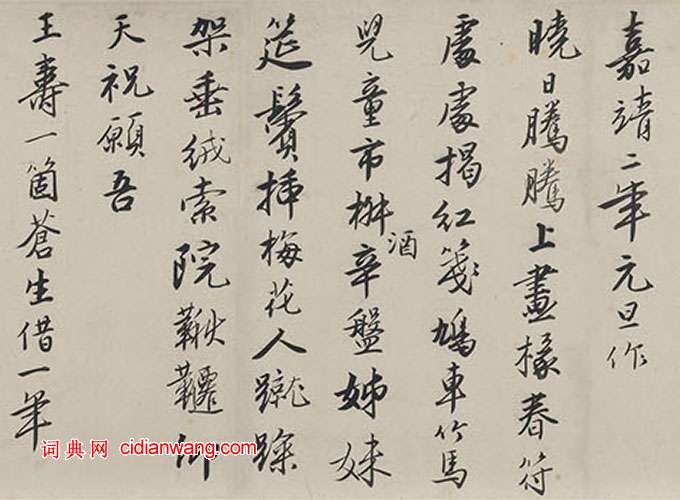 嘉靖二年元旦作
曉日騰騰上畫椽春符
處處揭紅箋鳩車竹馬
兒童市椒酒辛盤姊妹
筵鬢插梅花人蹴踘
架垂絨索院鞦韆仰
天祝願吾
王壽一箇蒼生借一年
词典网 cidianwang.com